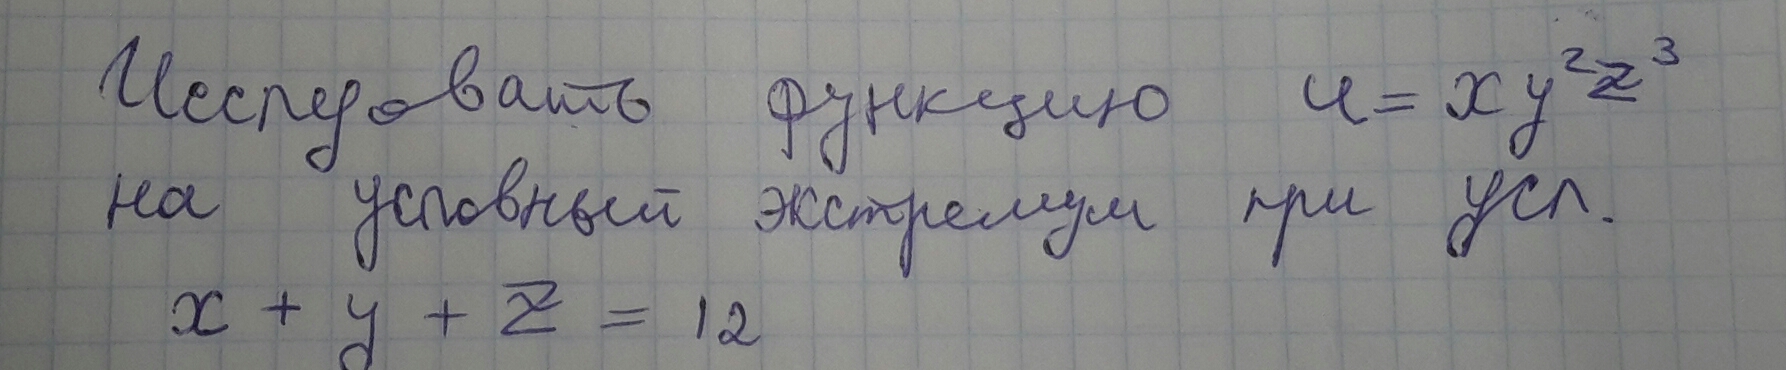 Исследовать функцию u = xy²z³
на условный экстремум при усл.
x + y + z = 12